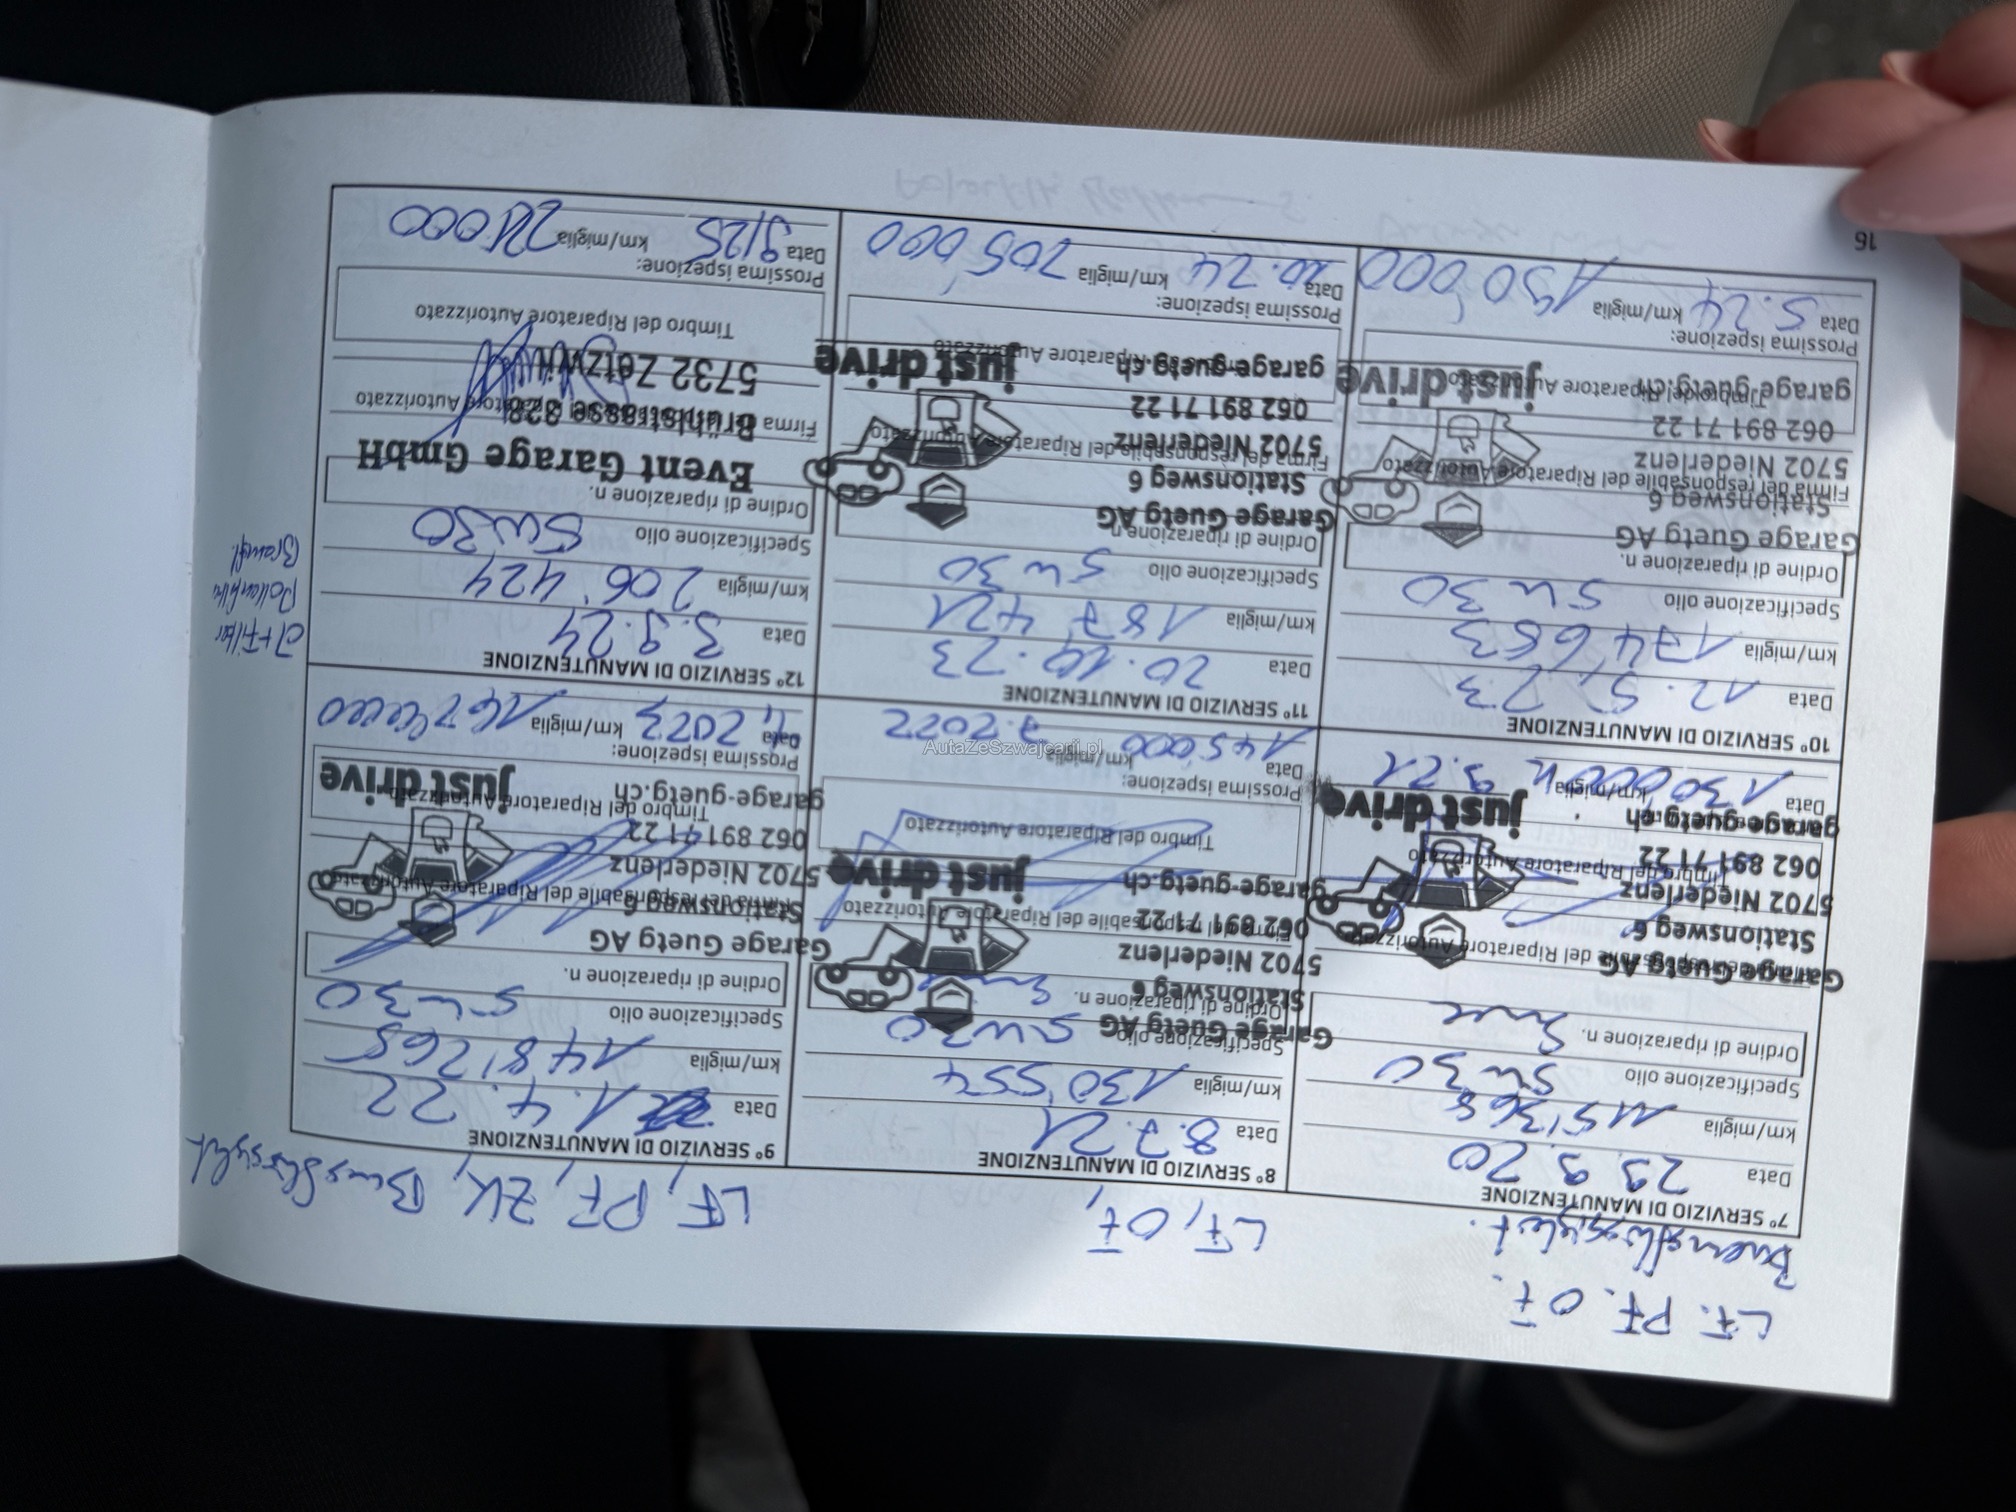 LF. PF. OF.
7° SERVIZIO DI MANUTENZIONE
Data 29.9.20
km/miglia 115'368
Specificazione olio 5w30
Ordine di riparazione n.
Garage Guetg AG
Stationsweg 6
5702 Niederlenz
062 891 71 22
garage-guetg.ch
just drive
Data 130'000 km/miglia 9.21
LF, OF,
8° SERVIZIO DI MANUTENZIONE
Data 8.7.21
km/miglia 130'554
Specificazione olio 5w30
Ordine di riparazione n.
Garage Guetg AG
Stationsweg 6
5702 Niederlenz
062 891 71 22
garage-guetg.ch
just drive
Firma del responsabile del Riparatore Autorizzato
Timbro del Riparatore Autorizzato
Prossima ispezione:
Data 145000 km/miglia 7.2022
LF, PF, ZK, Bremsflüssigkeit
9° SERVIZIO DI MANUTENZIONE
Data 1.4.22
km/miglia 148'265
Specificazione olio 5w30
Ordine di riparazione n.
Garage Guetg AG
Firma del responsabile del Riparatore Autorizzato
Stationsweg 6
5702 Niederlenz
062 891 71 22
Timbro del Riparatore Autorizzato
garage-guetg.ch
just drive
Prossima ispezione:
Data 4.2023 km/miglia
10° SERVIZIO DI MANUTENZIONE
Data 12.5.23
km/miglia 174'653
Specificazione olio 5w30
Ordine di riparazione n.
Garage Guetg AG
Stationsweg 6
Firma del responsabile del Riparatore Autorizzato
5702 Niederlenz
062 891 71 22
Timbro del Riparatore Autorizzato
garage-guetg.ch
just drive
Prossima ispezione:
Data 5.24 km/miglia 190'000
11° SERVIZIO DI MANUTENZIONE
Data 20.10.23
km/miglia 187421
Specificazione olio 5w30
Ordine di riparazione n.
Garage Guetg AG
Stationsweg 6
Firma del responsabile del Riparatore Autorizzato
5702 Niederlenz
062 891 71 22
garage-guetg.ch
Timbro del Riparatore Autorizzato
just drive
Prossima ispezione:
Data 10.24 km/miglia 205'000
12° SERVIZIO DI MANUTENZIONE
Data 3.9.24
km/miglia 206'424
Specificazione olio 5w30
Ordine di riparazione n.
Event Garage GmbH
Firma del responsabile del Riparatore Autorizzato
Brühlstrasse 838
5732 Zetzwil
Timbro del Riparatore Autorizzato
Prossima ispezione:
Data 9/25 km/miglia
Pollenfilter
16
AutaZeSzwajcarii.pl